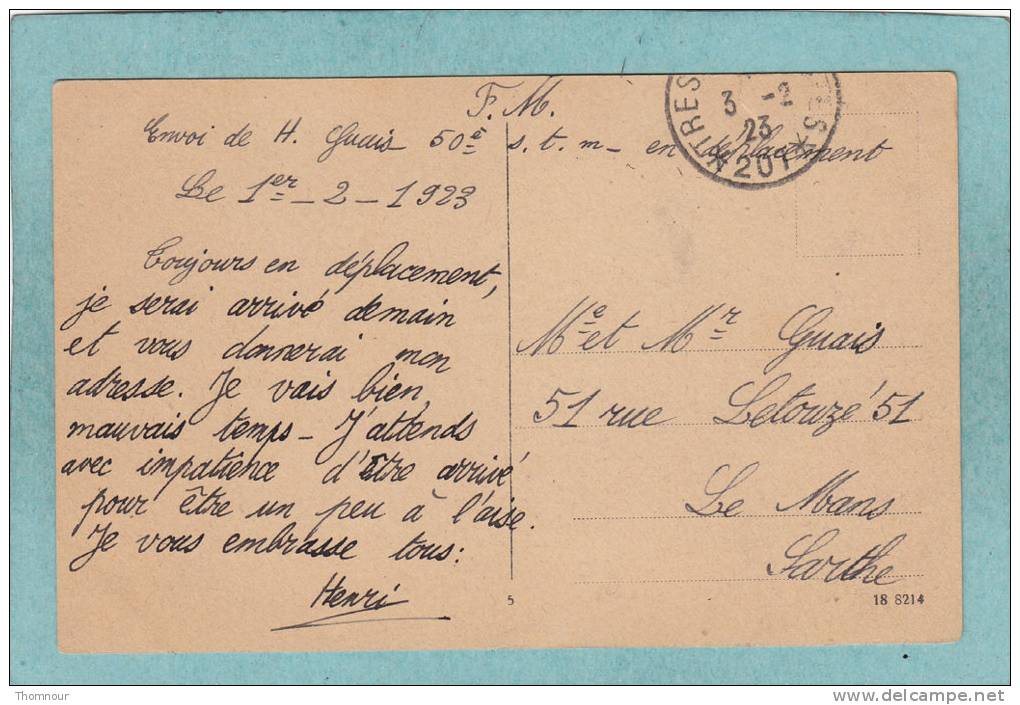 F. M.
Envoi de H. Guais 50e s. t. m - en déplacement
Le 1er - 2 - 1923
Toujours en déplacement,
je serai arrivé demain
et vous donnerai mon
adresse. Je vais bien,
mauvais temps - J'attends
avec impatience d'être arrivé
pour être un peu à l'aise.
Je vous embrasse tous:
Henri
TRES
3 -2
23
*201*
S
Me et Mr Guais
51 rue Letouzé 51
Le Mans
Sarthe
5
18 8214
Thomnour
www.delcampe.net